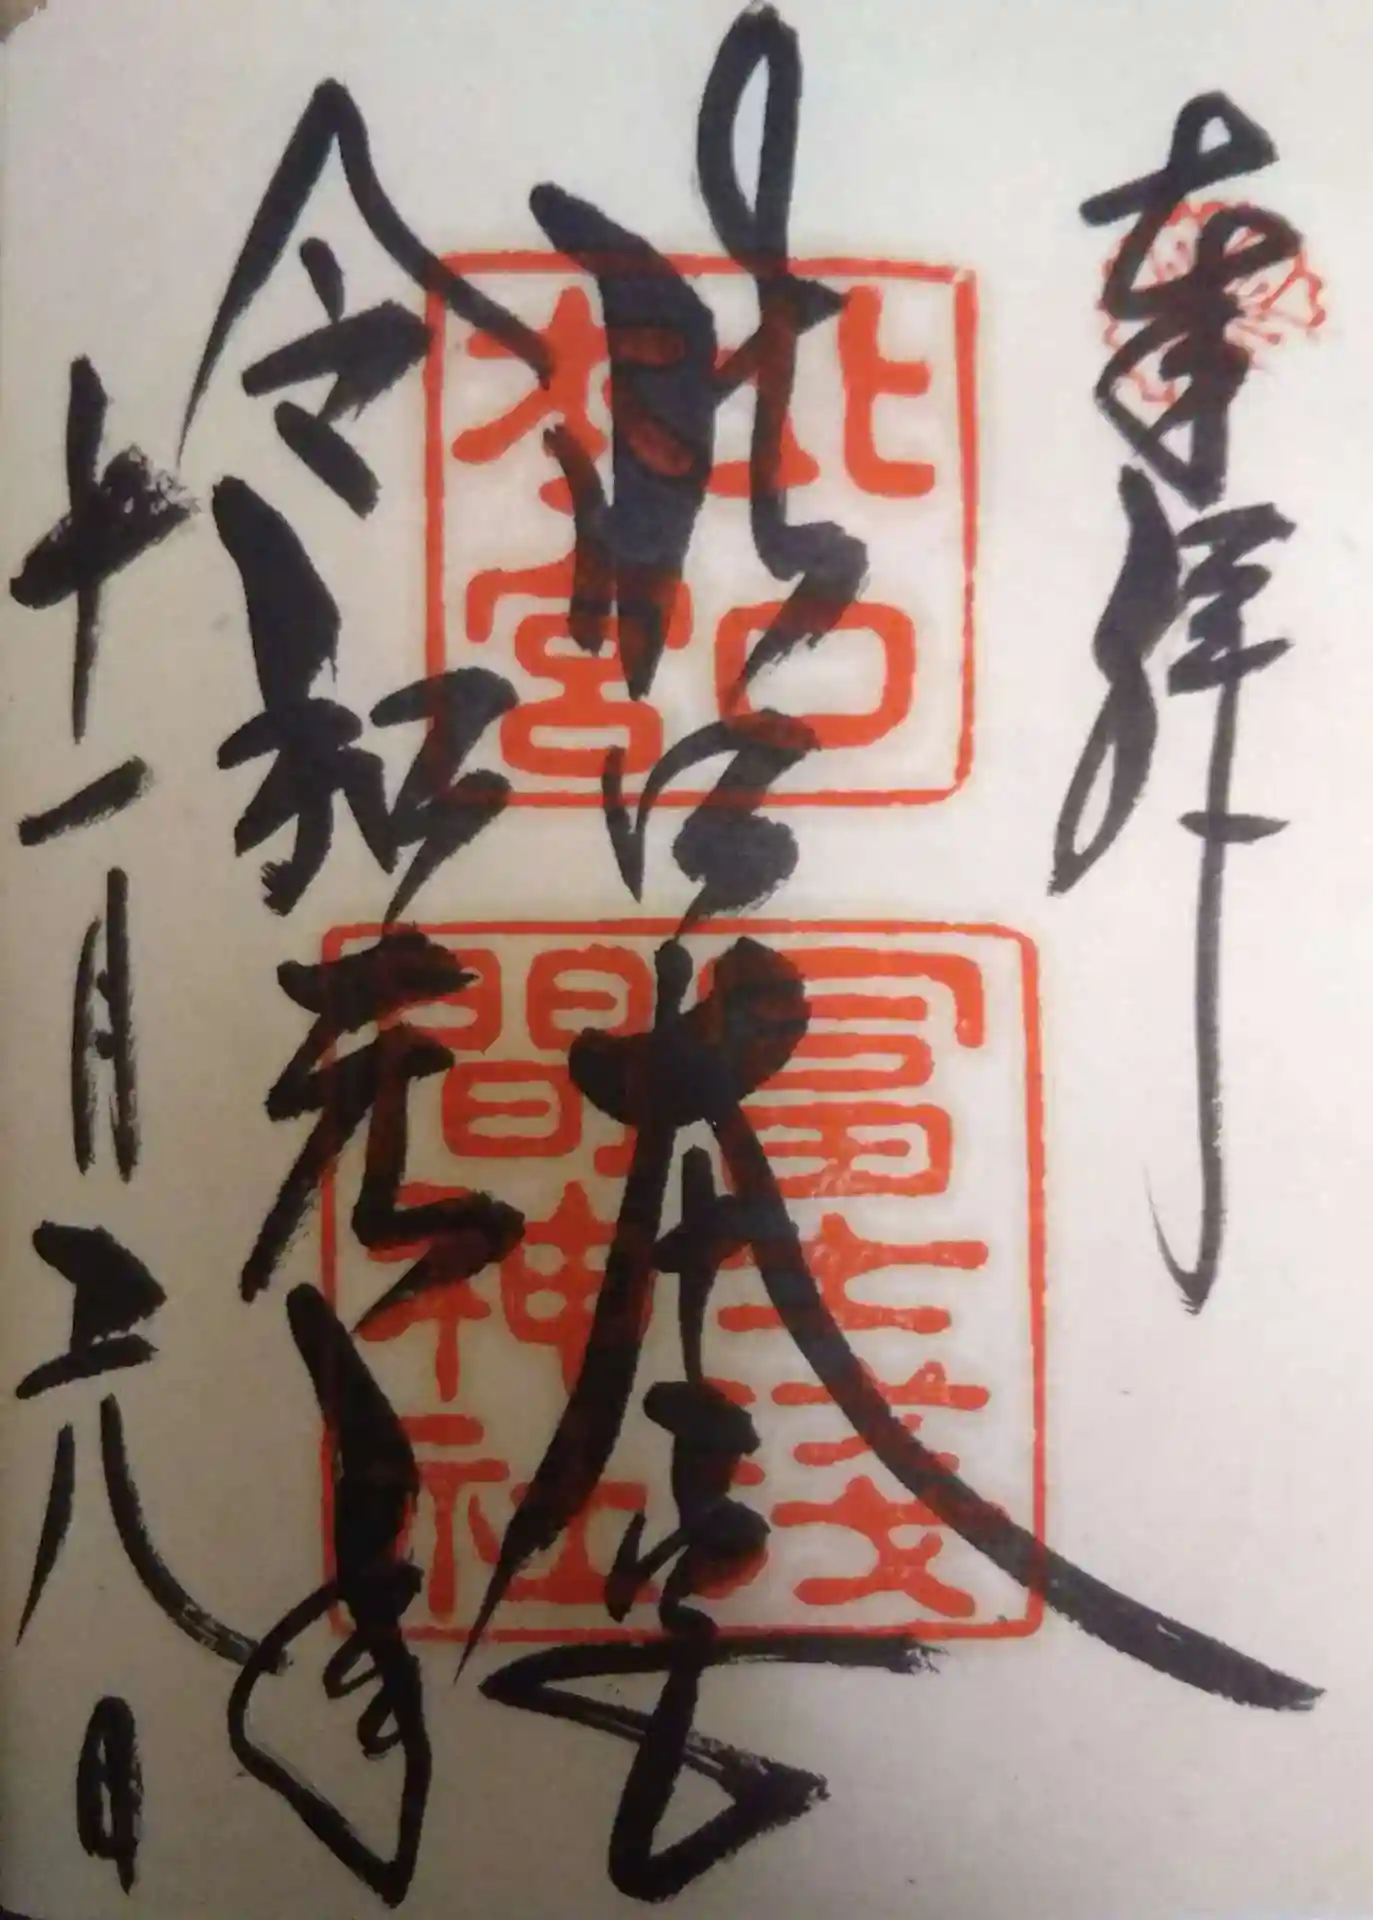 奉拝
北口本宮
令和元年
十一月 八日
北口
本宮
冨士浅
間神社